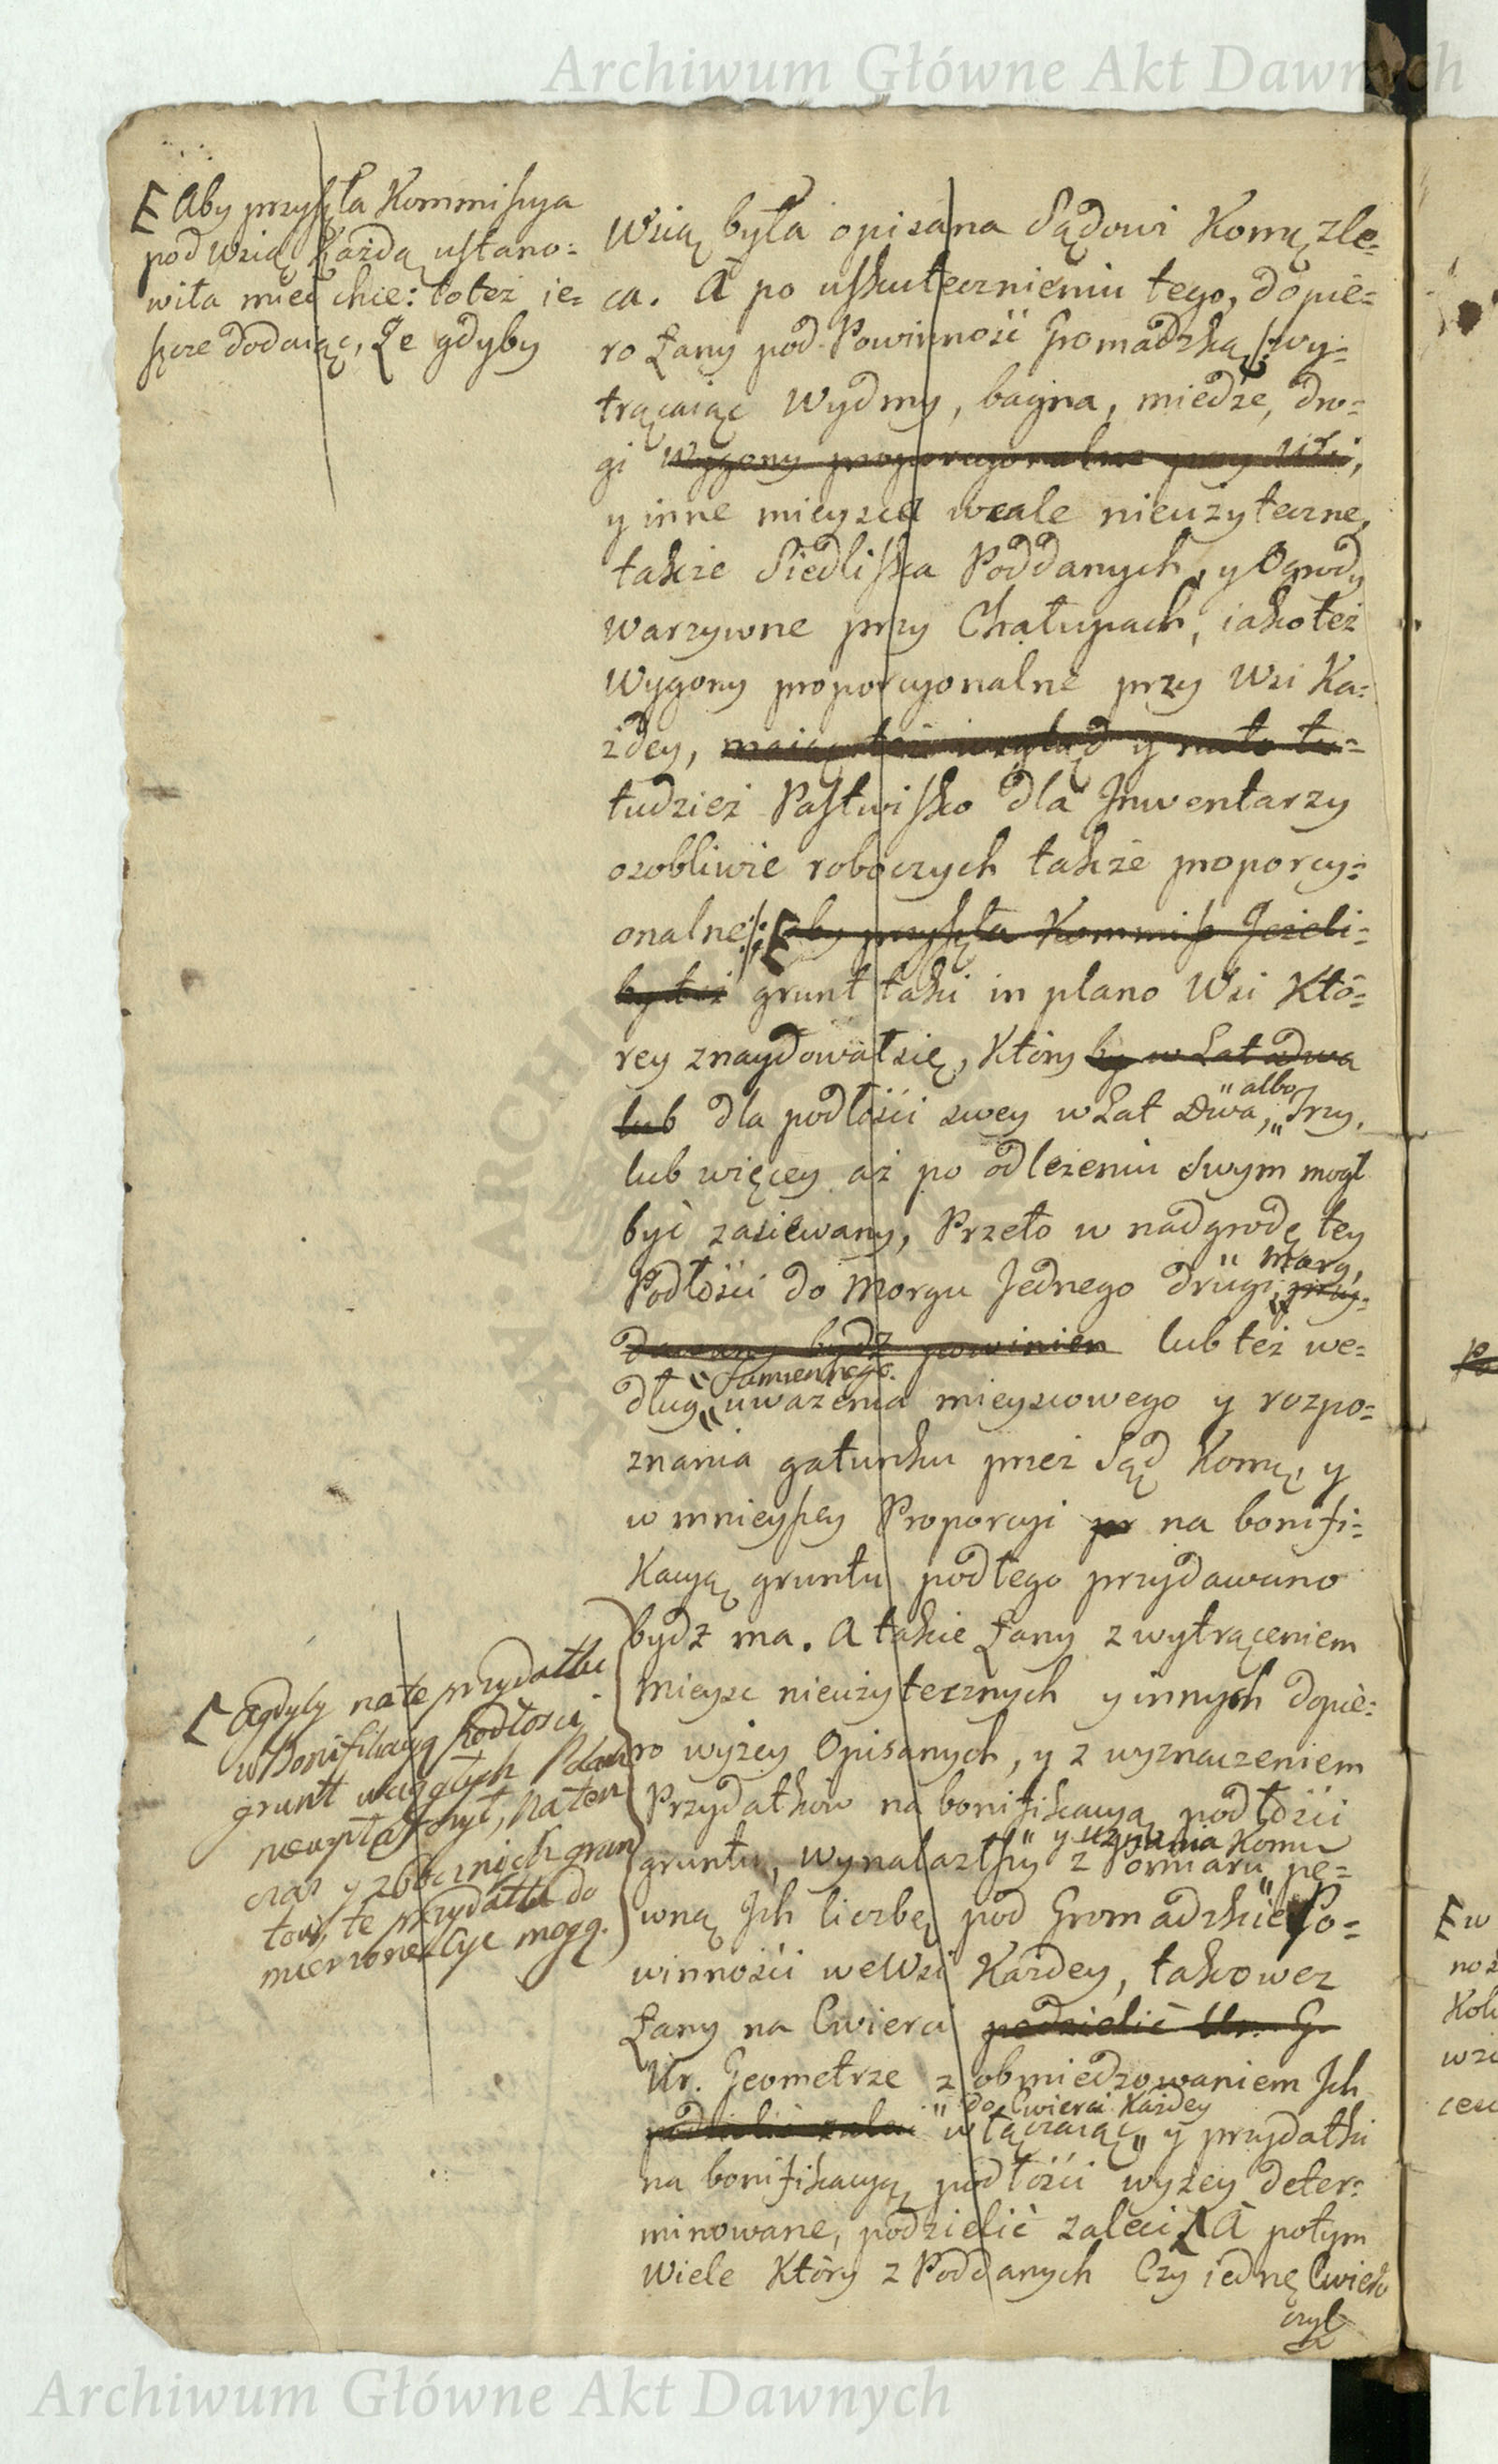 Archiwum Główne Akt Dawnych
[ Aby przyszła Kommissya
pod wsią Każdą ustano=
wiła mieć chce: toteż ie=
szcze dodaiąc, Że gdyby
Wsią była opisana Sądowi Komꝫ zle=
ca. A po uskutecznieniu tego, dopie=
ro Łany pod Powinność Gromadzką /:wy=
trącaiąc Wydmy, bagna, miedze, dro=
gi Wygony proporcyonalne przy Wsi,
y inne mieysca wcale nieużyteczne,
także Siedliska Poddanych, y Ogrody
warzywne przy Chałupach, iakoteż
Wygony proporcyonalne przy Wsi Ka=
żdey, maiąc też wzgląd y na to tu=
tudzież Pastwisko dla Inwentarzy
osobliwie roboczych także proporcy=
onalne:/ [ by przyszła Kommiss Jeżeli=
byłei grunt taki in plano Wsi Któ=
rey znaydował się, Który by w Lat dwa
lub dla podłości swey w Lat Dwa, " albo " Trzy,
lub więcey aż po odleżeniu swym mogł
być zasiewany, Przeto w nadgrodę tey
Podłości do Morgu Jednego drugi " Morg, przy=
dawany bydź powinien lub też we=
dług " Sumiennego " uważenia mieyscowego y rozpo=
znania gatunku przez Sąd Komꝫ, y
w mnieyszey Proporcyi pr na bonifi=
Kacyą gruntu podłego przydawano
bydź ma. A takie Łany z wytrąceniem
Mieysc nieużytecznych y innych dopie=
ro wyżey Opisanych, y z wyznaczeniem
Przydatków na bonifikacyą podłości
gruntu, wynalazłszy z Pomiaru " y uznania Komu " pe=
wną Ich liczbę pod Gromadzkie Po=
winności we Wsi Każdey, takowez
Łany na Cwierci podzielić Ur. G.
Ur. Geometrze z obmiedzowaniem Ich
podzielić zaleci włączaiąc " do Cwierci Każdey " y przydatki
na bonifikacyą podłości wyżey deter=
minowane, podzielić zaleci [ A potym
Wiele Który z Poddanych Czy iednę Cwierć
czyl
[ Agdyby na te przydatki
w Bonifikacyą podłości
grunt w ciągłych Polach
niewystarczył, naten
czas y z bocznych grun
tów, te przydatki do
mierzone być mogą.
[ w
Archiwum Główne Akt Dawnych